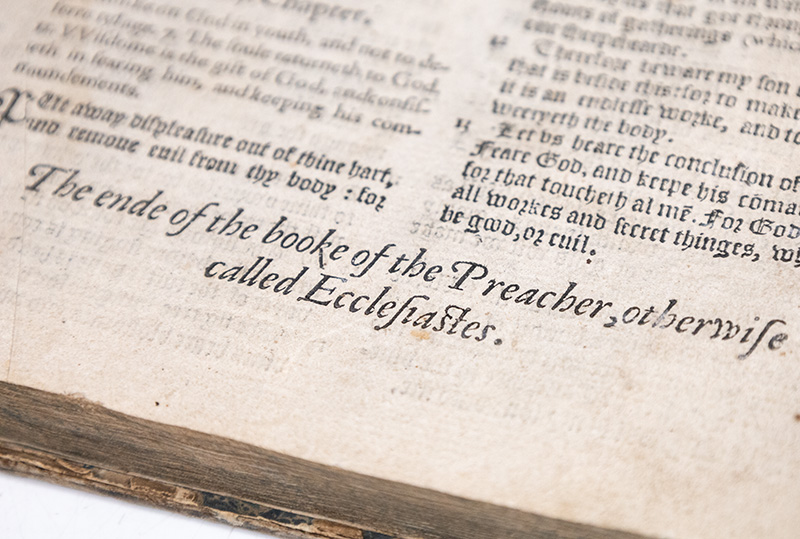 Chapter.
on God in youth, and not to de-
7. The soule returneth to God.
VVisdome is the gift of God, and consist-
eth in fearing him, and keeping his com-
maundements.
PUt away displeasure out of thine hart,
and remoue euil from thy body : for
gatherings (which
Therfore beware my son
that is beside this: for to make
it is an endlesse worke, and
weerieth the body.
13 Let vs heare the conclusion of
Feare God, and keepe his
for that toucheth al mē. For God
all workes and secret thinges,
be good, or euil.
The ende of the booke of the Preacher, otherwiſe
called Eccleſiaſtes.